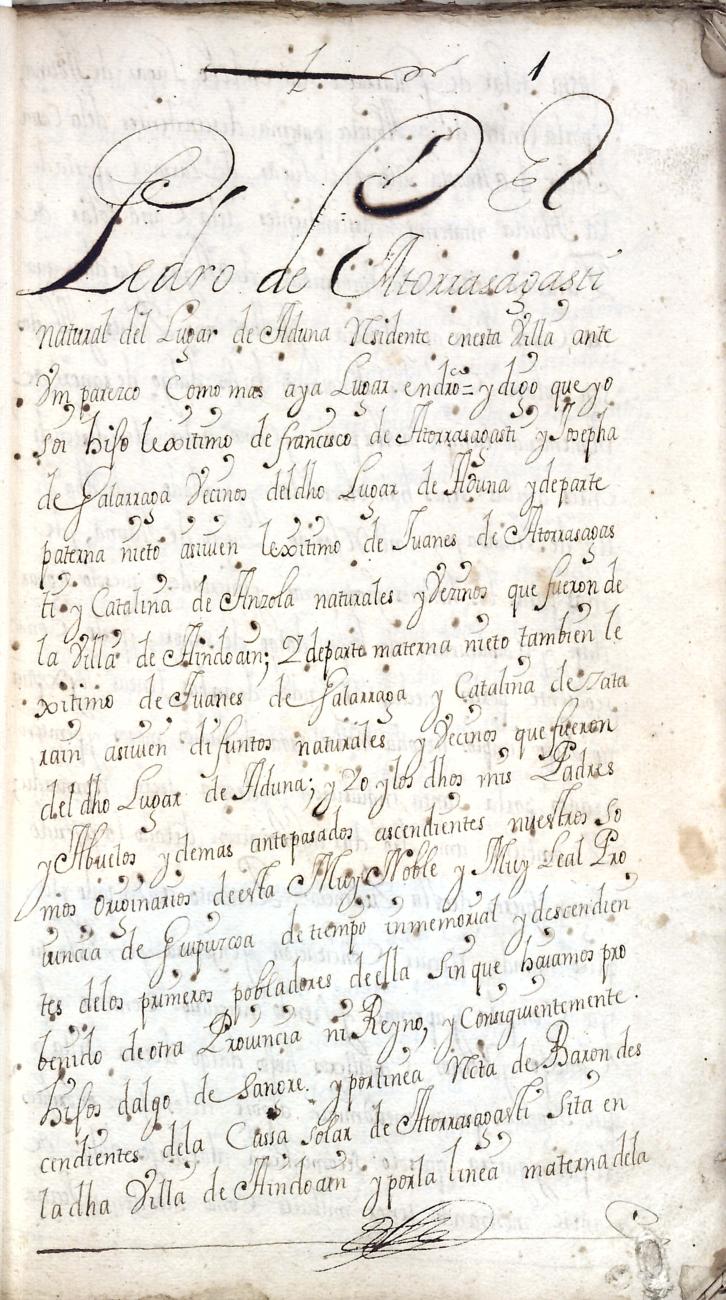 1
Pedro de Atorrasagasti
natural del Lugar de Aduna Residente enesta Villa ante
Vm parezco Como mas aya Lugar endro= y digo que yo
soi hijo lexitimo de francisco de Atorrasagasti y Josepha
de Galarraga Vecinos deldho Lugar de Aduna ydeparte
paterna nieto asiuien lexitimo de Juanes de Atorrasagas
ti y Catalina de Anzola naturales yVezinos que fueron de
la Villa de Aindoain; Y departe materna nieto tambien le
xitimo de Juanes de Galarraga y Catalina de zata
rain asiuien difuntos naturales y Vecinos que fueron
deldho Lugar de Aduna; y Yo ylos dhos mis Padres
y Abuelos ydemas antepasados ascendientes nuestros So
mos originarios deesta Muy Noble y Muy Leal Pro
uincia de Guipuzcoa de tiempo inmemorial y descendien
tes delos primeros pobladores deella Sin que haiamos pro
benido de otra Prouincia ni Reyno, y Consiguientemente.
hijos dalgo de Sangre. y porlinea Recta de Baron des
cendientes dela Cassa Solar de Atorrasagasti Sita en
ladha Villa de Aindoain y porla linea materna dela